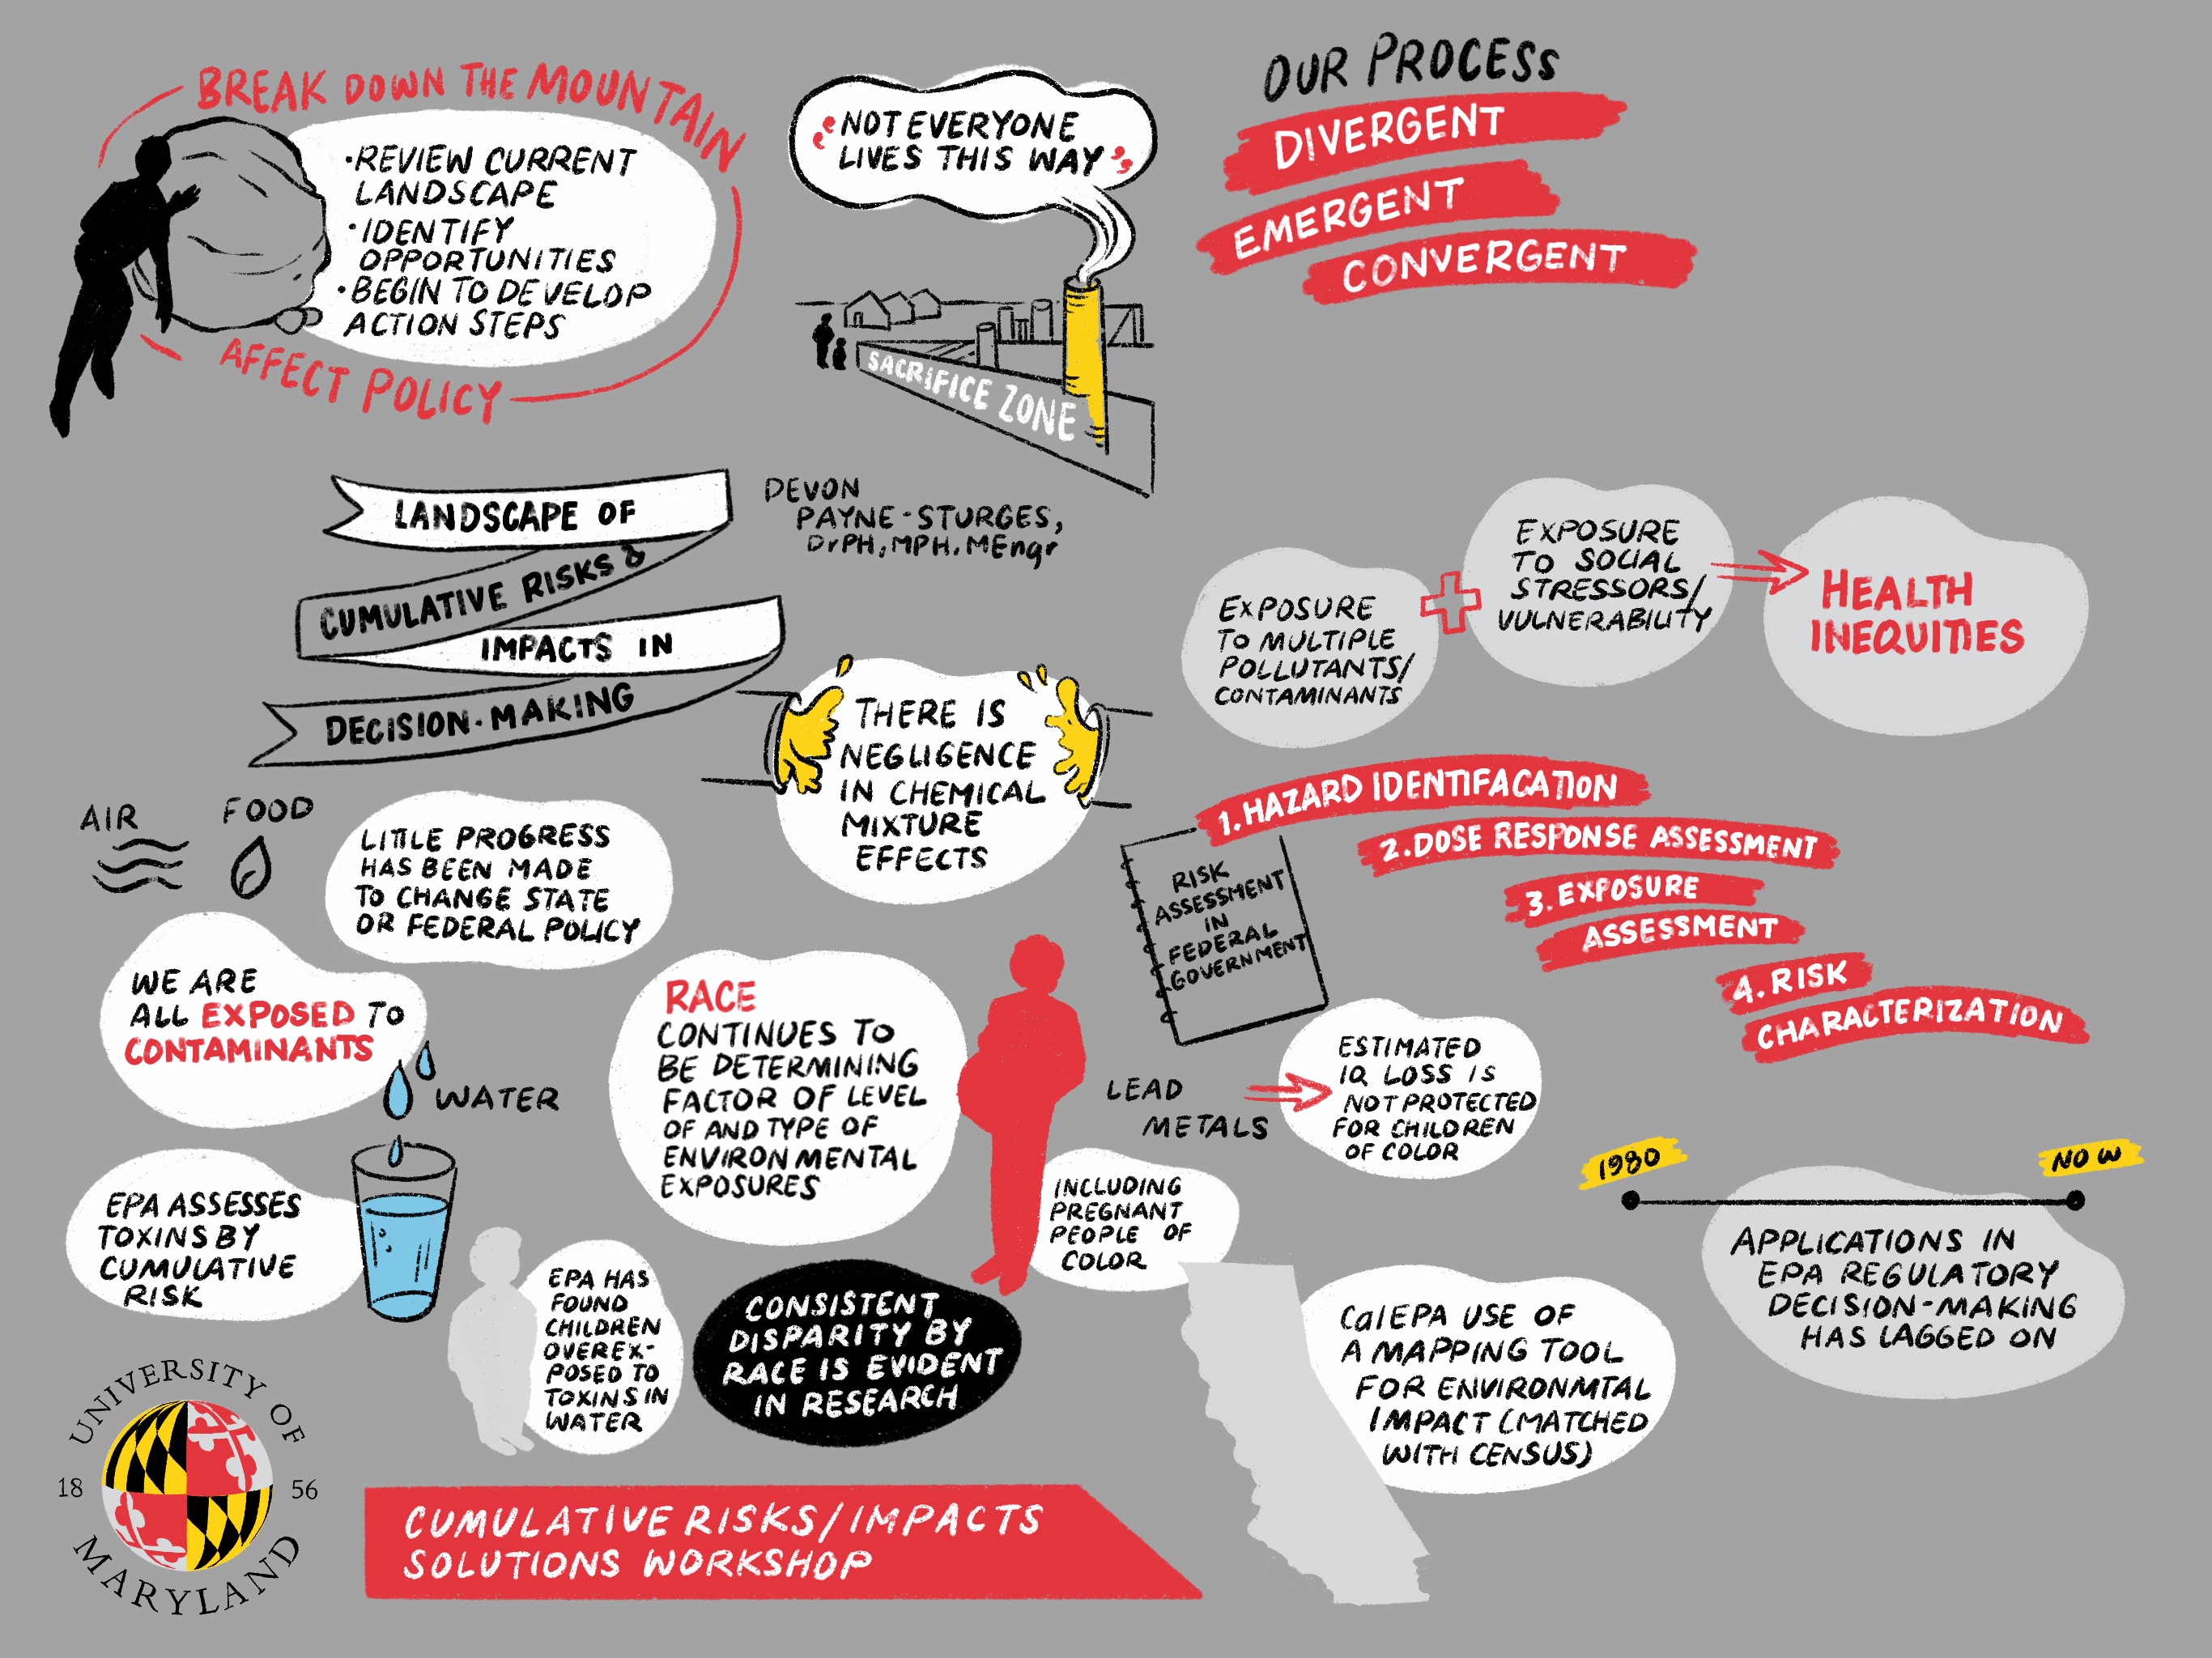 BREAK DOWN THE MOUNTAIN
•REVIEW CURRENT
LANDSCAPE
•IDENTIFY
OPPORTUNITIES
•BEGIN TO DEVELOP
ACTION STEPS
AFFECT POLICY
"NOT EVERYONE
LIVES THIS WAY"
SACRIFICE ZONE
OUR PROCESS
DIVERGENT
EMERGENT
CONVERGENT
LANDSCAPE OF
CUMULATIVE RISKS &
IMPACTS IN
DECISION-MAKING
DEVON
PAYNE-STURGES,
DrPH, MPH, MEngr
EXPOSURE
TO MULTIPLE
POLLUTANTS/
CONTAMINANTS
+
EXPOSURE
TO SOCIAL
STRESSORS/
VULNERABILITY
HEALTH
INEQUITIES
THERE IS
NEGLIGENCE
IN CHEMICAL
MIXTURE
EFFECTS
AIR
FOOD
LITTLE PROGRESS
HAS BEEN MADE
TO CHANGE STATE
OR FEDERAL POLICY
WE ARE
ALL EXPOSED TO
CONTAMINANTS
WATER
EPA ASSESSES
TOXINS BY
CUMULATIVE
RISK
RACE
CONTINUES TO
BE DETERMINING
FACTOR OF LEVEL
OF AND TYPE OF
ENVIRONMENTAL
EXPOSURES
RISK
ASSESSMENT
IN
FEDERAL
GOVERNMENT
1. HAZARD IDENTIFACATION
2. DOSE RESPONSE ASSESSMENT
3. EXPOSURE
ASSESSMENT
4. RISK
CHARACTERIZATION
LEAD
METALS
ESTIMATED
IQ LOSS IS
NOT PROTECTED
FOR CHILDREN
OF COLOR
INCLUDING
PREGNANT
PEOPLE OF
COLOR
EPA HAS
FOUND
CHILDREN
OVEREX-
POSED TO
TOXINS IN
WATER
CONSISTENT
DISPARITY BY
RACE IS EVIDENT
IN RESEARCH
1980
NOW
APPLICATIONS IN
EPA REGULATORY
DECISION-MAKING
HAS LAGGED ON
CalEPA USE OF
A MAPPING TOOL
FOR ENVIRONMTAL
IMPACT (MATCHED
WITH CENSUS)
UNIVERSITY OF
18 56
MARYLAND
CUMULATIVE RISKS/IMPACTS
SOLUTIONS WORKSHOP